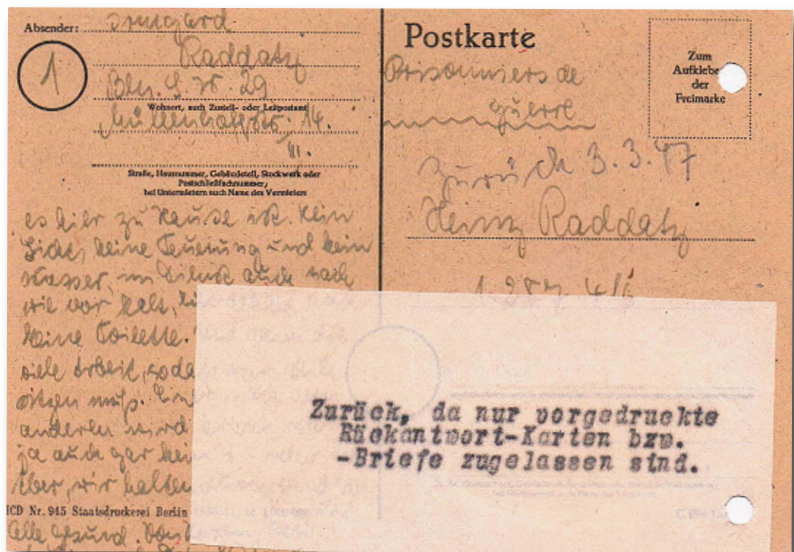 Absender: Irmgard
Raddatz
Bln. S.W. 29
Wohnort, auch Zustell- oder Leitpostamt
14.
III.
Straße, Hausnummer, Gebäudeteil, Stockwerk oder
Postschließfachnummer,
bei Untermietern auch Name des Vermieters
1
es hier zu Hause ist. Kein
Licht, keine Feuerung und kein
Wasser, im Dienst auch nach
wie vor kalt,
keine Toilette.
viele Arbeit,
sitzen muß.
anderen wird
ja auch gar kein
aber, wir halten
ICD Nr. 945 Staatsdruckerei Berlin
alle gesund.
Postkarte
Zum
Aufklebe
der
Freimarke
Prisonniers de
guerre
Zurück 3.3.47
Heinz Raddatz
Zurück, da nur vorgedruckte
Rückantwort-Karten bzw.
-Briefe zugelassen sind.